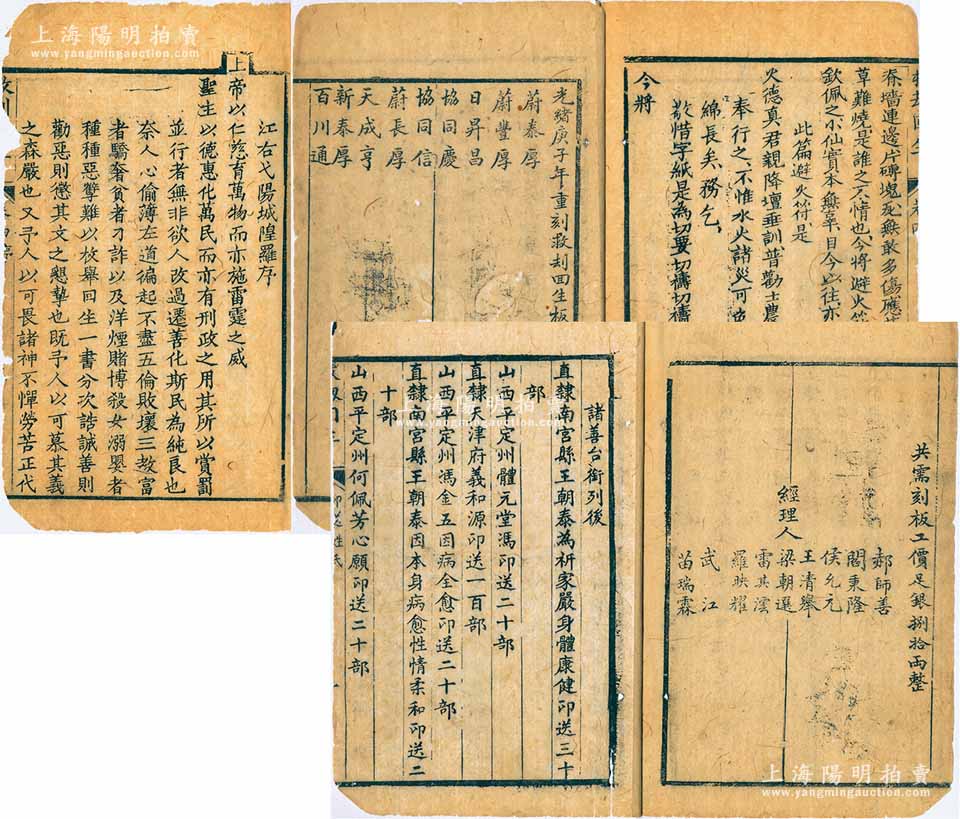 上海陽明拍賣
www.yangmingauction.com
江右弋陽城隍羅序
上帝以仁慈育萬物而亦施雷霆之威
聖主以德惠化萬民而亦有刑政之用其所以賞罰
並行者無非欲人改過遷善化斯民為純良也
奈人心偷薄左道徧起不盡五倫敗壞三教富
者驕奢貧者刁詐以及洋煙賭博殺女溺嬰者
種種惡孼難以枚舉回生一書分次誥誡善則
勸惡則懲其文之懇摯也既予人以可慕其義
之森嚴也又予人以可畏諸神不憚勞苦正代
光緒庚子年重刻救刼回生板
蔚泰厚
蔚豐厚
日昇昌
協同慶
協同信
蔚長厚
天成亨
新泰厚
百川通
脊墻連邊片磚塊瓦無敢多傷應
草難燒是誰之人情也今將避火
欽佩之小仙實本無辜目今以往亦
此篇避火符是
火德真君親降壇垂訓普勸士農
奉行之不惟水火諸災可
綿長矣務乞
敬惜字紙是為切要切禱切禱
今將
上海陽明拍賣
www.yangmingauction.com
諸善台銜列後
直隸南宮縣王朝泰為祈家嚴身體康健印送三十
部
山西平定州體元堂馮印送二十部
直隸天津府義和源印送一百部
山西平定州馮金五因病全愈印送二十部
直隸南宮縣王朝泰因本身病愈性情柔和印送二
十部
山西平定州何佩芳心願印送二十部
共需刻板工價足銀捌拾両整
經理人
郝師善
閻秉隆
侯允元
王清舉
梁朝選
雷其澐
羅映耀
武江
苗瑞霖
上海陽明拍賣
www.yangmingauction.com